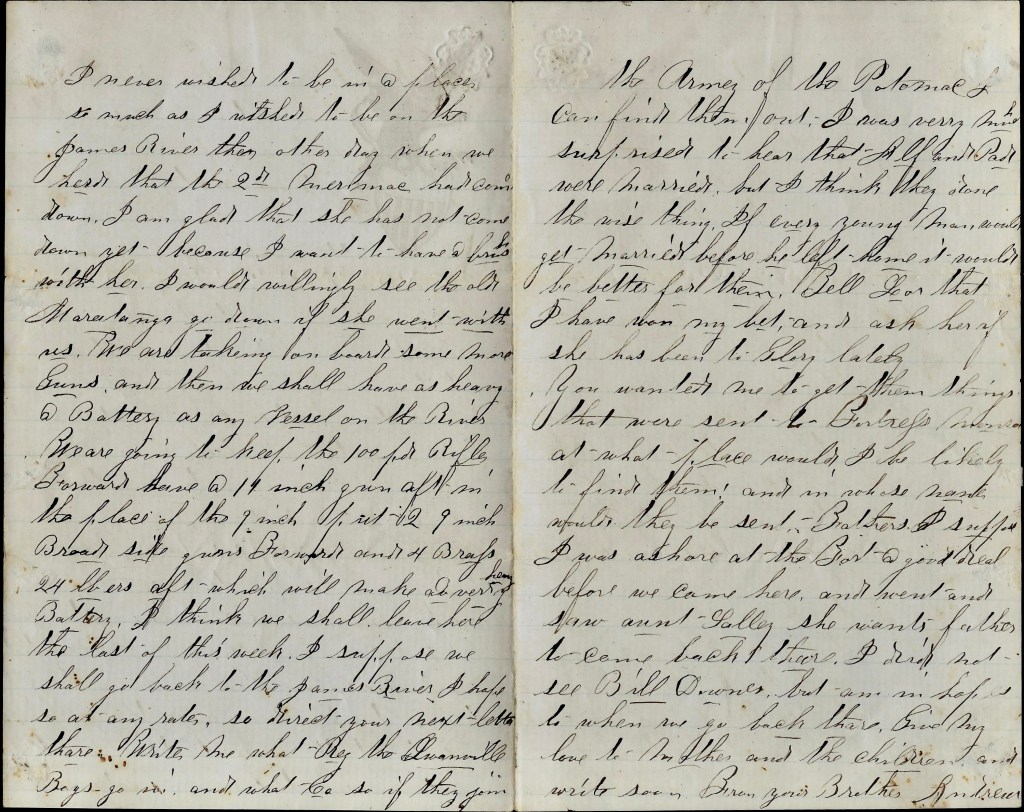 I never wished to be in a place
so much as I wished to be on the
James River the other day when we
herd that the 2d Merimac had come
down. I am glad that she has not come
down yet because I want to have a brush
with her. I would willingly see the old
Maratanza go down if she went with
us. We are taking on board some more
Guns. and then we shall have as heavy
a Battery as any Vessel on the River
We are going to keep the 100 pdr Rifle
Forward have a 11 inch gun aft in
the place of the 9 inch put 2 9 inch
Broad side guns Forward and 4 Brass
24 lbers aft which will make a very heavy
Battery. I think we shall leave here
the last of this week. I suppose we
shall go back to the James River I hope
so at any rate. so direct your next letter
thare. Write me what Reg the Swanville
Boys go in. and what Co so if they join
the Armey of the Potomac I
can find them out. I was verry much
surprised to hear that Alf and
were married. but I think they done
the wise thing. If every young man would
get married before he left home it would
be better for them. Tell that
I have won my bet, and ask her if
she has been to Glory lately
You wanted me to get them things
that were sent to Fortress Monroe
at what place would I be likely
to find them! and in whose name
would they be sent. Fathers I suppose
I was ashore at the Fort a good deal
before we came here. and went and
saw aunt Salley she wants father
to come back there. I did not
see Bill Downes. but am in hopes
to when we go back thare. Give my
love to Mother and the children and
write soon From your Brother Andrew